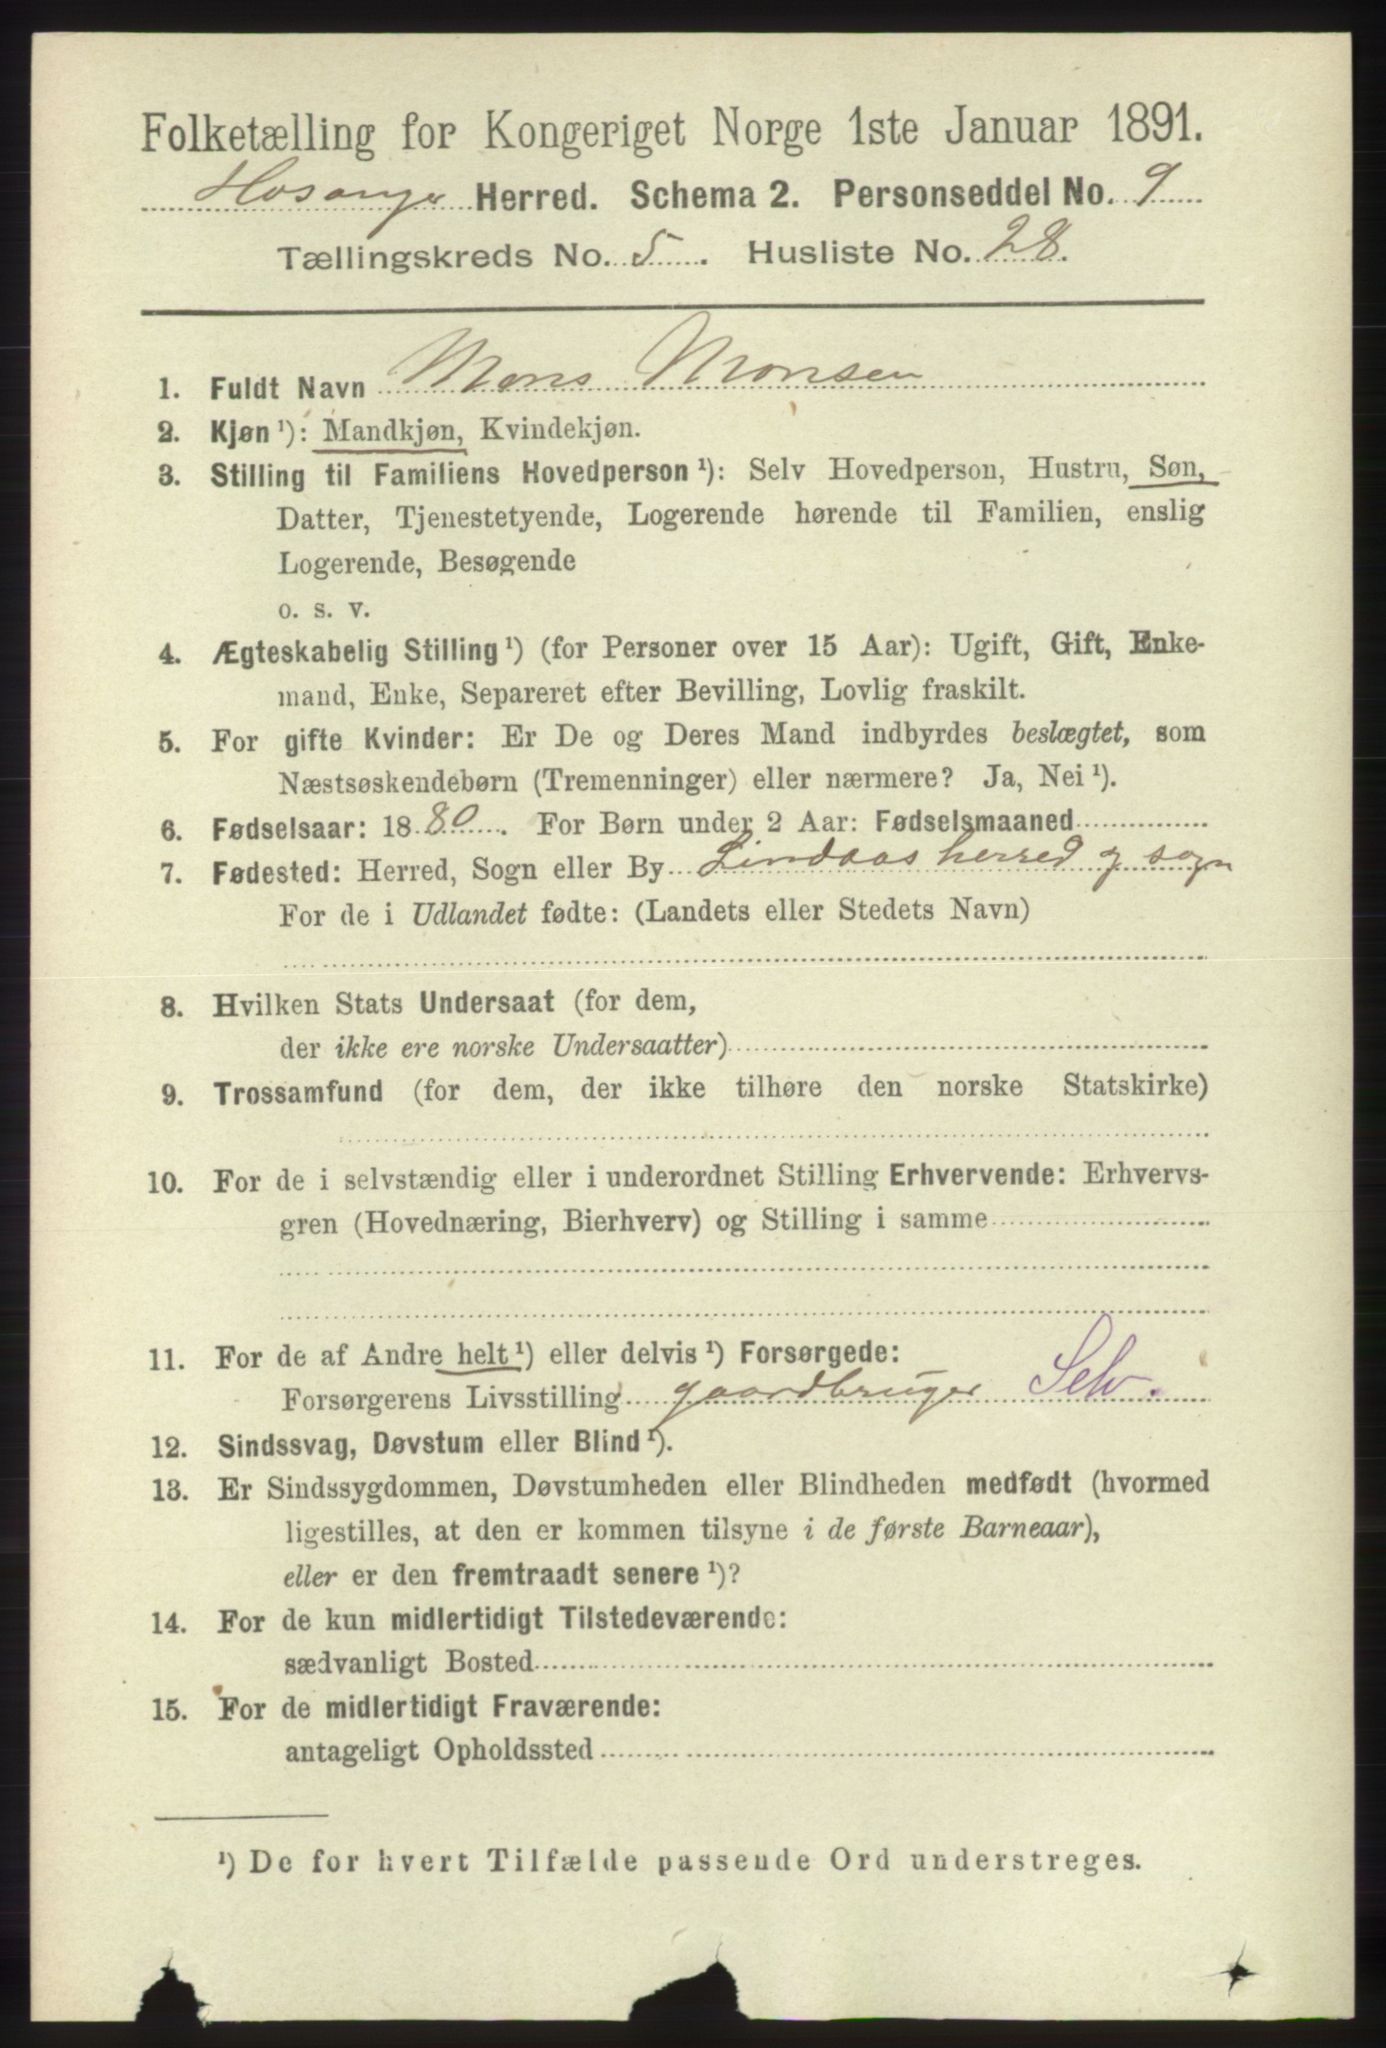 Folketælling for Kongeriget Norge 1ste Januar 1891.
Hosanger Herred. Schema 2. Personseddel No. 9
Tællingskreds No. 5. Husliste No. 28.
1. Fuldt Navn Mons Monsen
2. Kjøn ¹): Mandkjøn, Kvindekjøn.
3. Stilling til Familiens Hovedperson ¹): Selv Hovedperson, Hustru, Søn,
Datter, Tjenestetyende, Logerende hørende til Familien, enslig
Logerende, Besøgende
o. s. v.
4. Ægteskabelig Stilling ¹) (for Personer over 15 Aar): Ugift, Gift, Enke-
mand, Enke, Separeret efter Bevilling, Lovlig fraskilt.
5. For gifte Kvinder: Er De og Deres Mand indbyrdes beslægtet, som
Næstsøskendebørn (Tremenninger) eller nærmere? Ja, Nei ¹).
6. Fødselsaar: 1880. For Børn under 2 Aar: Fødselsmaaned
7. Fødested: Herred, Sogn eller By Lindaas herred og sogn
For de i Udlandet fødte: (Landets eller Stedets Navn)
8. Hvilken Stats Undersaat (for dem,
der ikke ere norske Undersaatter)
9. Trossamfund (for dem, der ikke tilhøre den norske Statskirke)
10. For de i selvstændig eller i underordnet Stilling Erhvervende: Erhvervs-
gren (Hovednæring, Bierhverv) og Stilling i samme
11. For de af Andre helt ¹) eller delvis ¹) Forsørgede:
Forsørgerens Livsstilling gaardbruger Selv.
12. Sindssvag, Døvstum eller Blind ¹).
13. Er Sindssygdommen, Døvstumheden eller Blindheden medfødt (hvormed
ligestilles, at den er kommen tilsyne i de første Barneaar),
eller er den fremtraadt senere ¹)?
14. For de kun midlertidigt Tilstedeværende:
sædvanligt Bosted
15. For de midlertidigt Fraværende:
antageligt Opholdssted
¹) De for hvert Tilfælde passende Ord understreges.